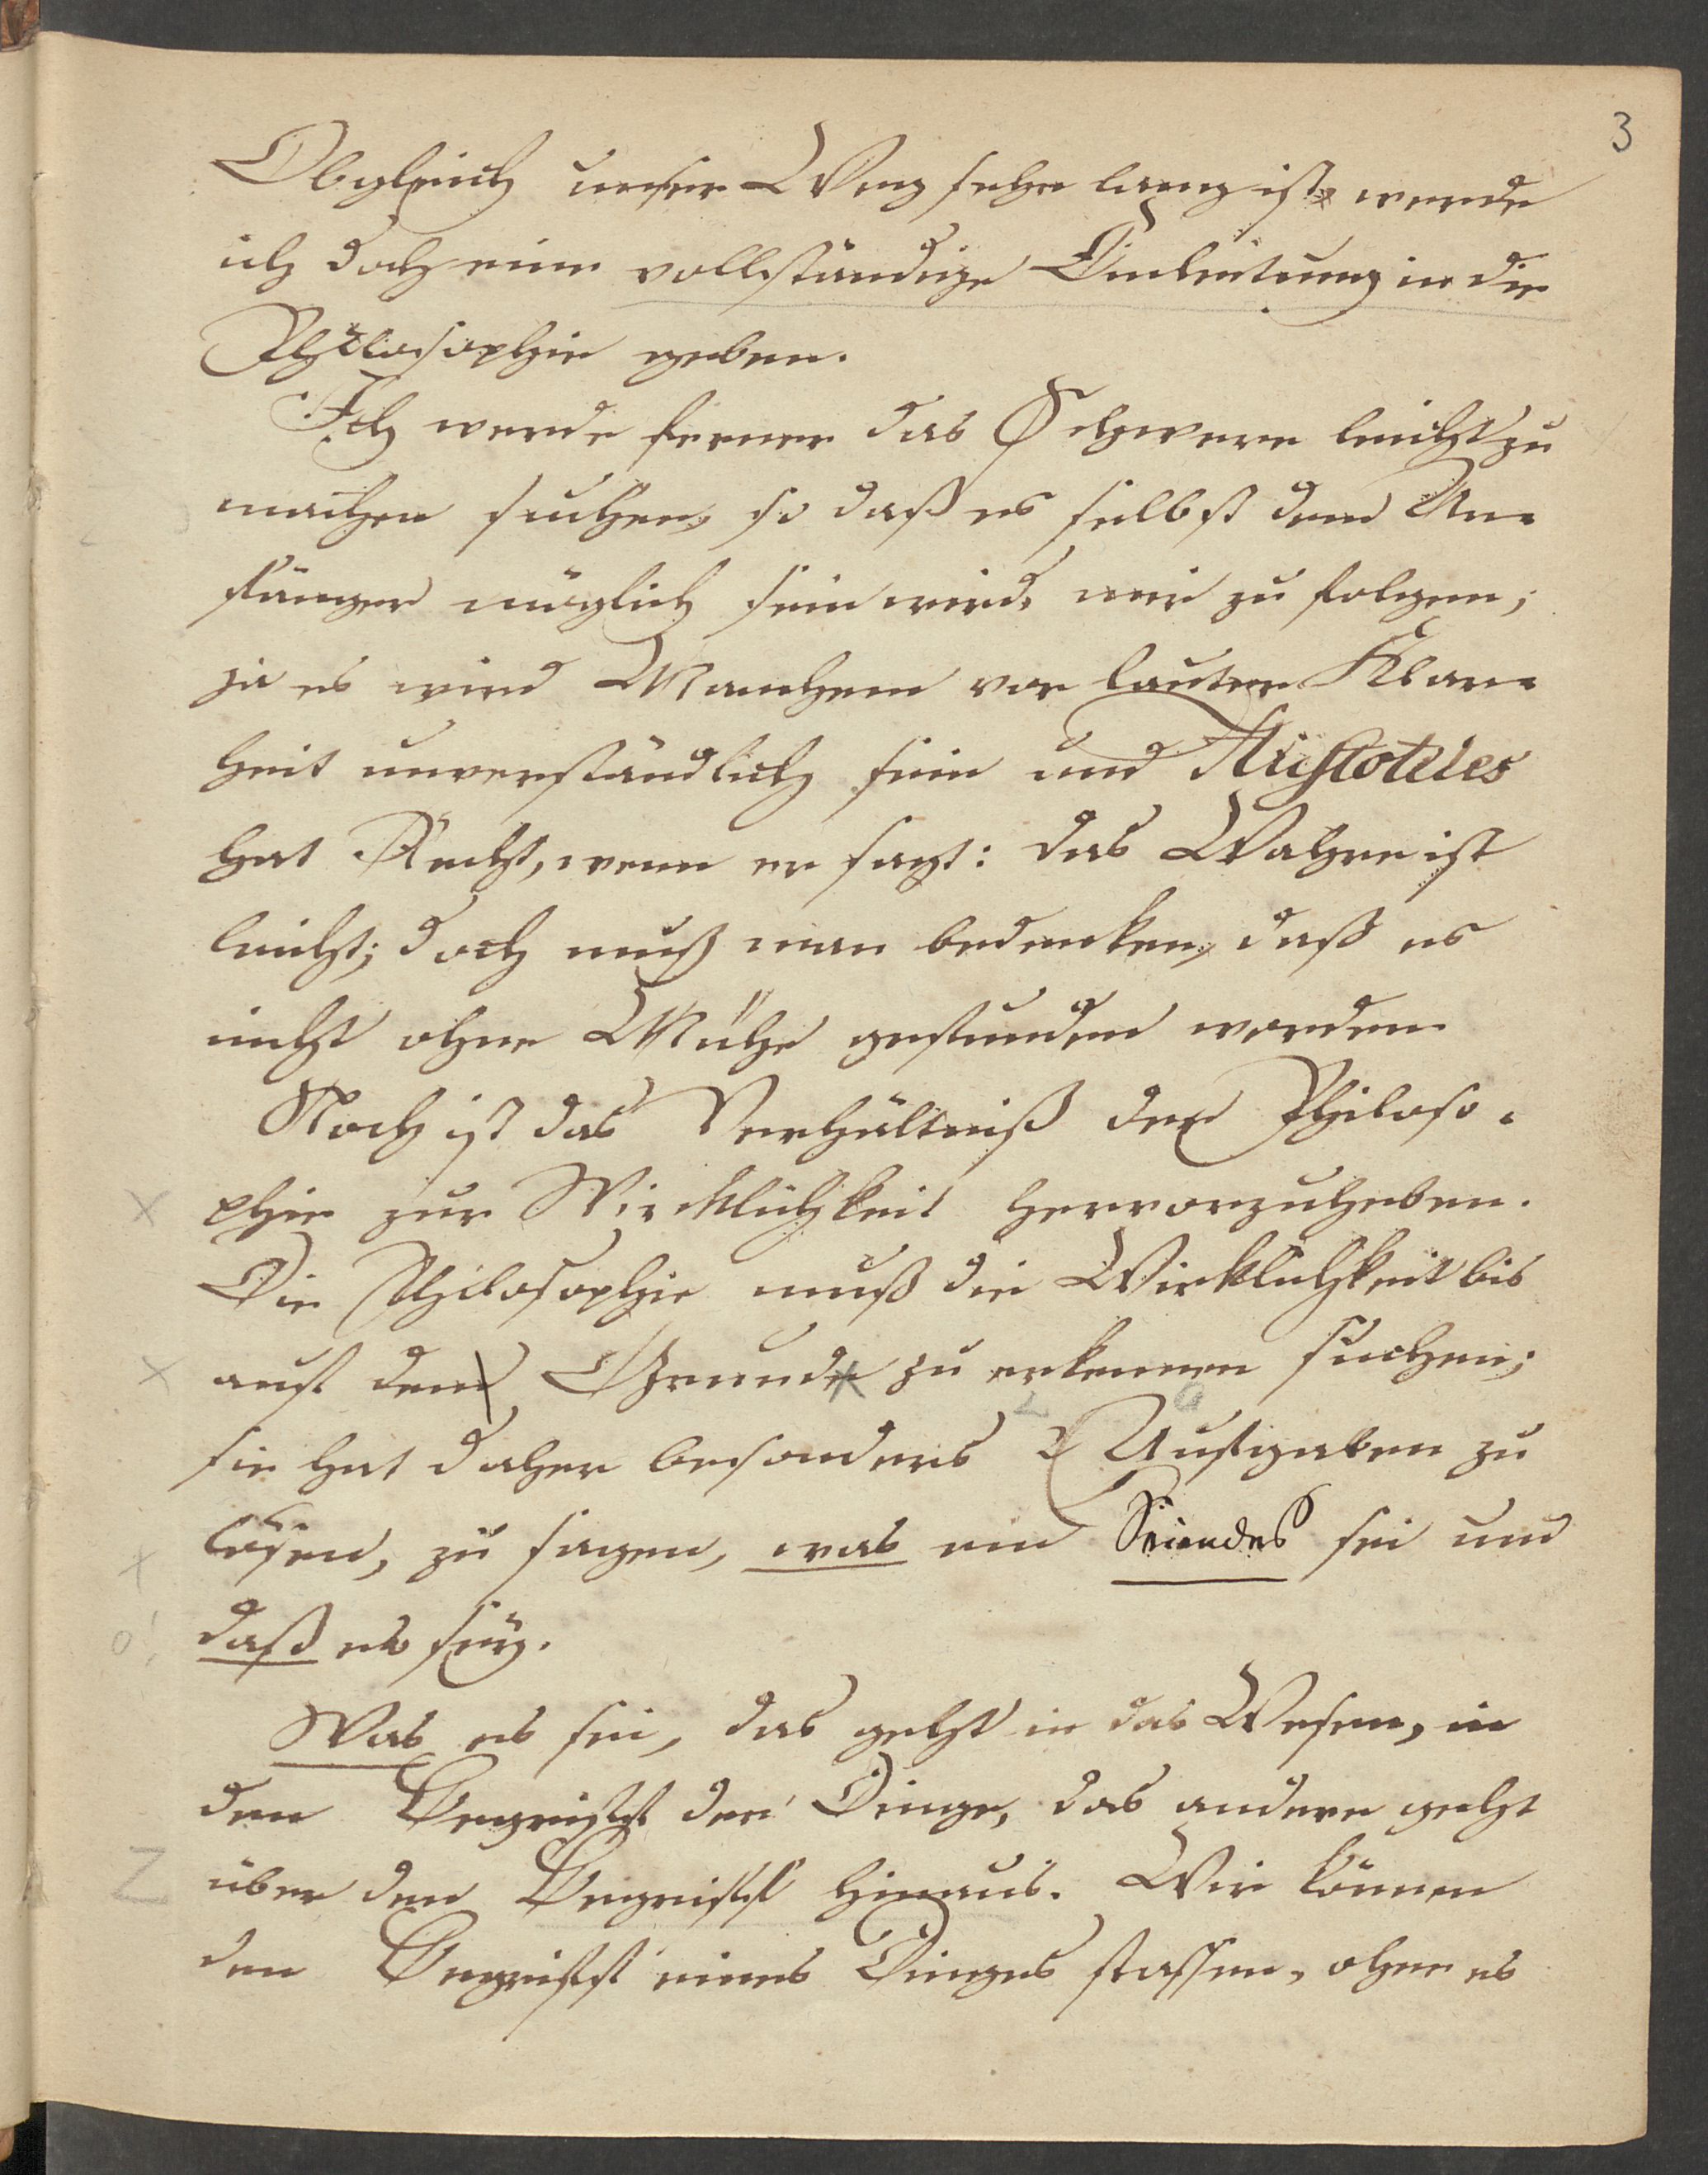 3
Obgleich unser Weg sehr lang ist, werde
ich doch eine vollständige Einleitung in die
Philosophie geben.
Ich werde ferner das Schwere leicht zu
machen suchen, so daß es selbst dem An-
fänger möglich sein wird, mir zu folgen;
ja es wird Manchem vor lauter Klar-
heit unverständlich sein und Aristoteles
hat Recht, wenn er sagt: das Wahre ist
leicht; doch muß man bedenken, daß es
nicht ohne Mühe gefunden worden
Noch ist das Verhältniß der Philoso-
phie zur Wirklichkeit hervorzuheben.
Die Philosophie muß die Wirklichkeit bis
auf den Grund zu erkennen suchen;
sie hat daher besonders 2 Aufgaben zu
lösen, zu sagen, was ein Seiendes sei und
daß es sey.
Was es sei, das geht in das Wesen, in
den Begriff der Dinge, das andere geht
über den Begriff hinaus. Wir können
den Begriff eines Dinges fassen, ohne es